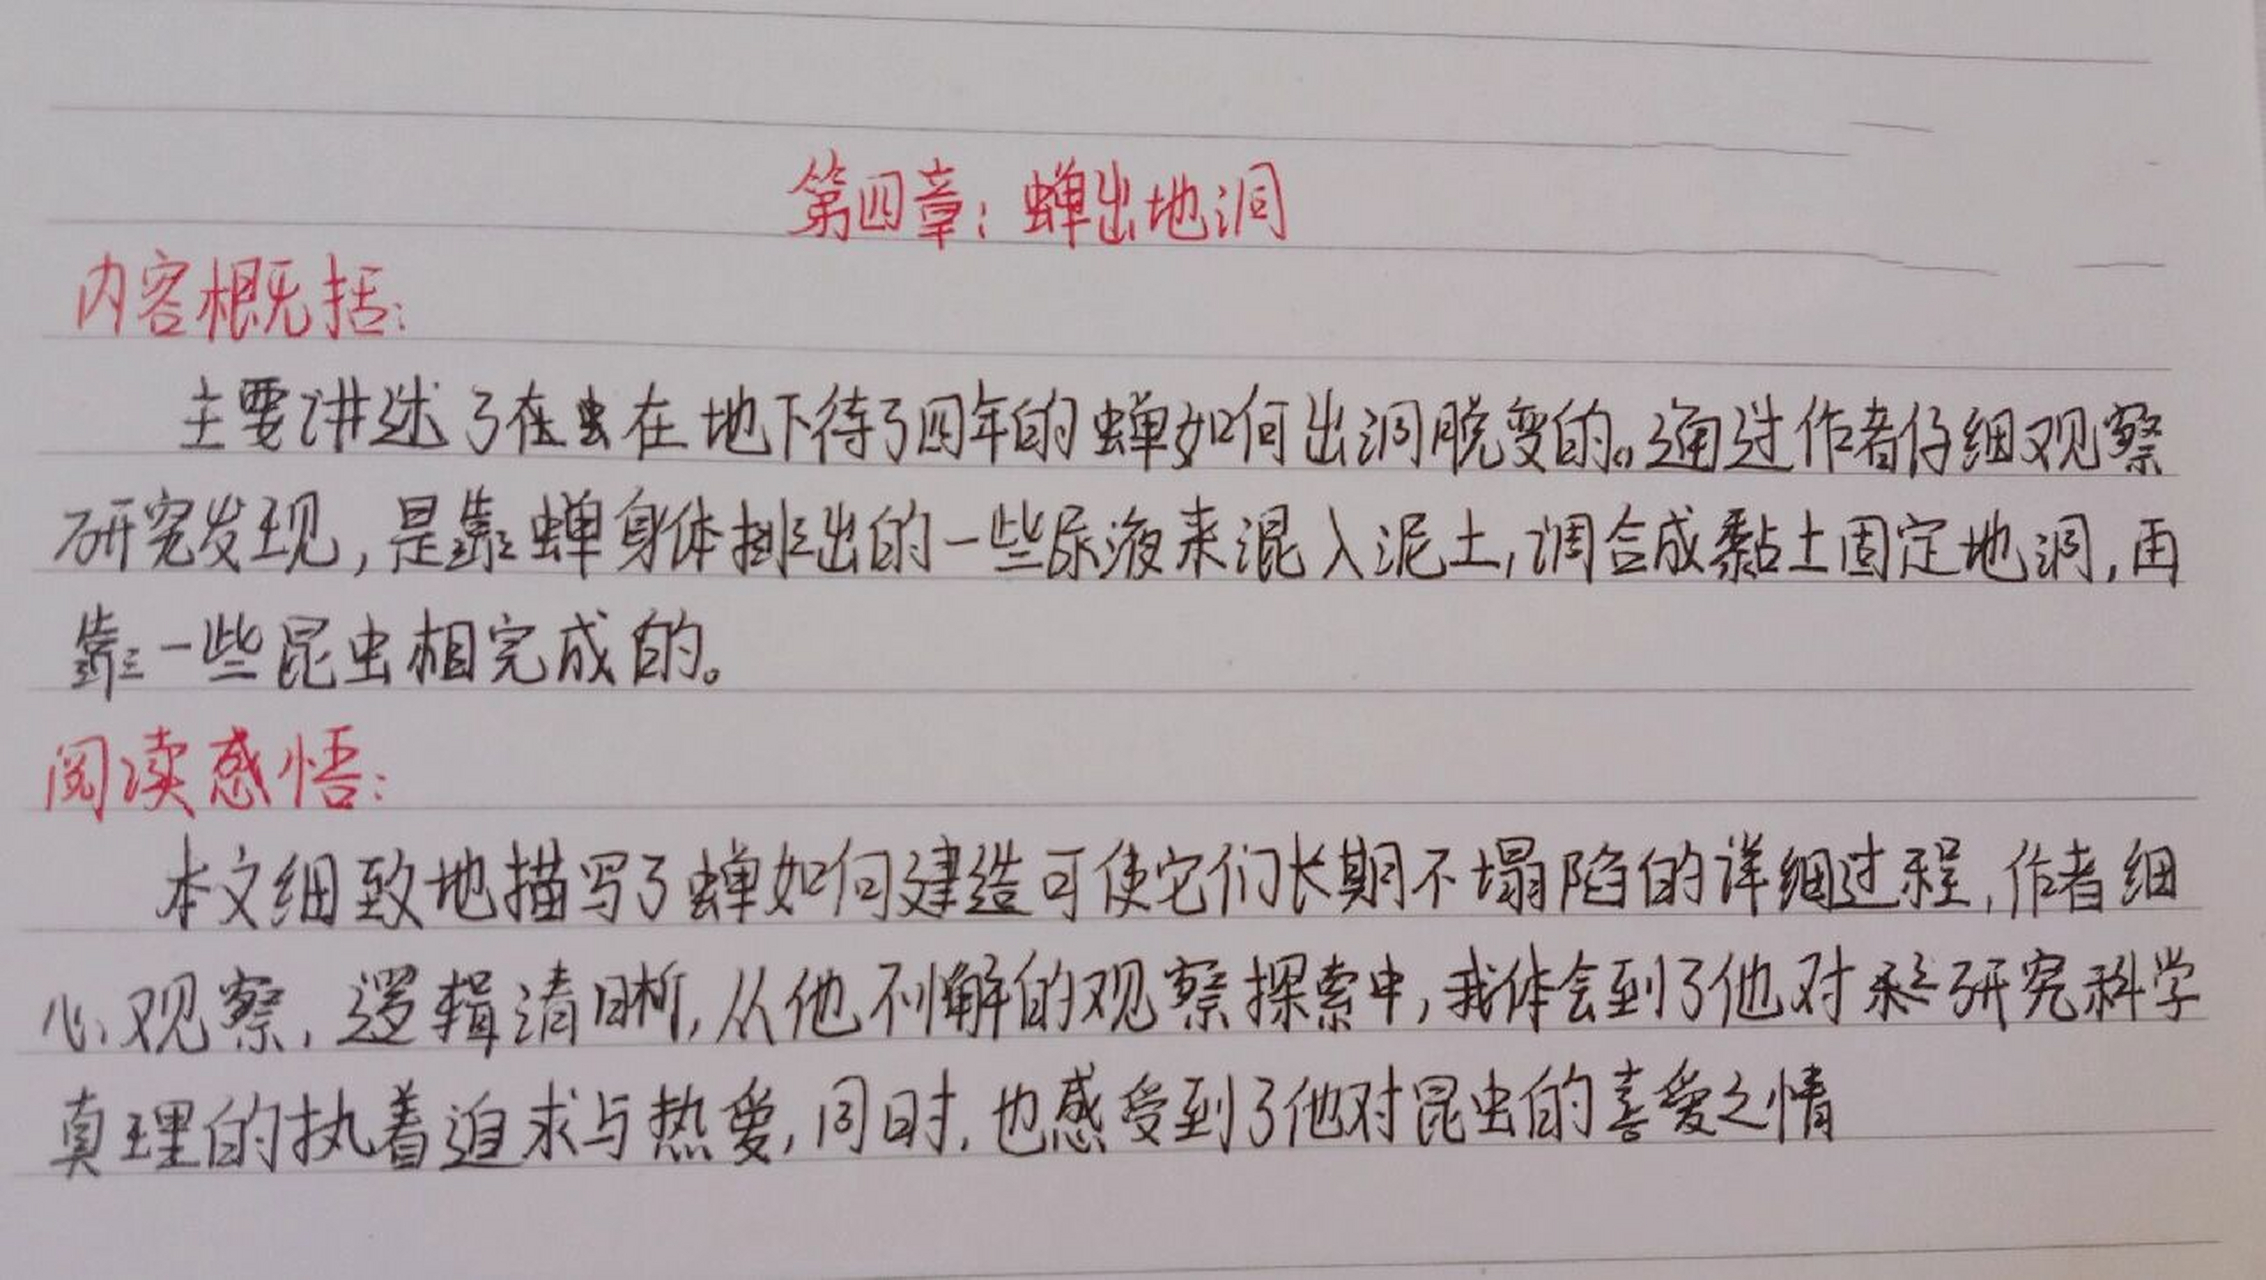 第四章：蝉出地洞
内容概括：
主要讲述了在虫在地下待了四年的蝉如何出洞脱变的。通过作者仔细观察
研究发现，是靠蝉身体排出的一些尿液来混入泥土，调合成黏土固定地洞，再
靠一些昆虫相完成的。
阅读感悟：
本文细致地描写了蝉如何建造可使它们长期不塌陷的详细过程，作者细
心观察，逻辑清晰，从他不懈的观察探索中，我体会到了他对研究科学
真理的执着追求与热爱，同时，也感受到了他对昆虫的喜爱之情